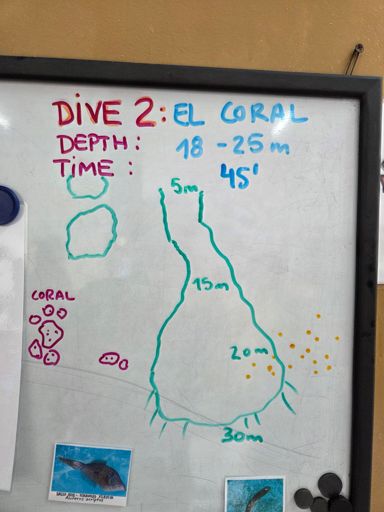 DIVE 2: EL CORAL
DEPTH: 18 - 25 m
TIME: 45'
5m
15m
CORAL
20m
30m
Aluterus scriptus